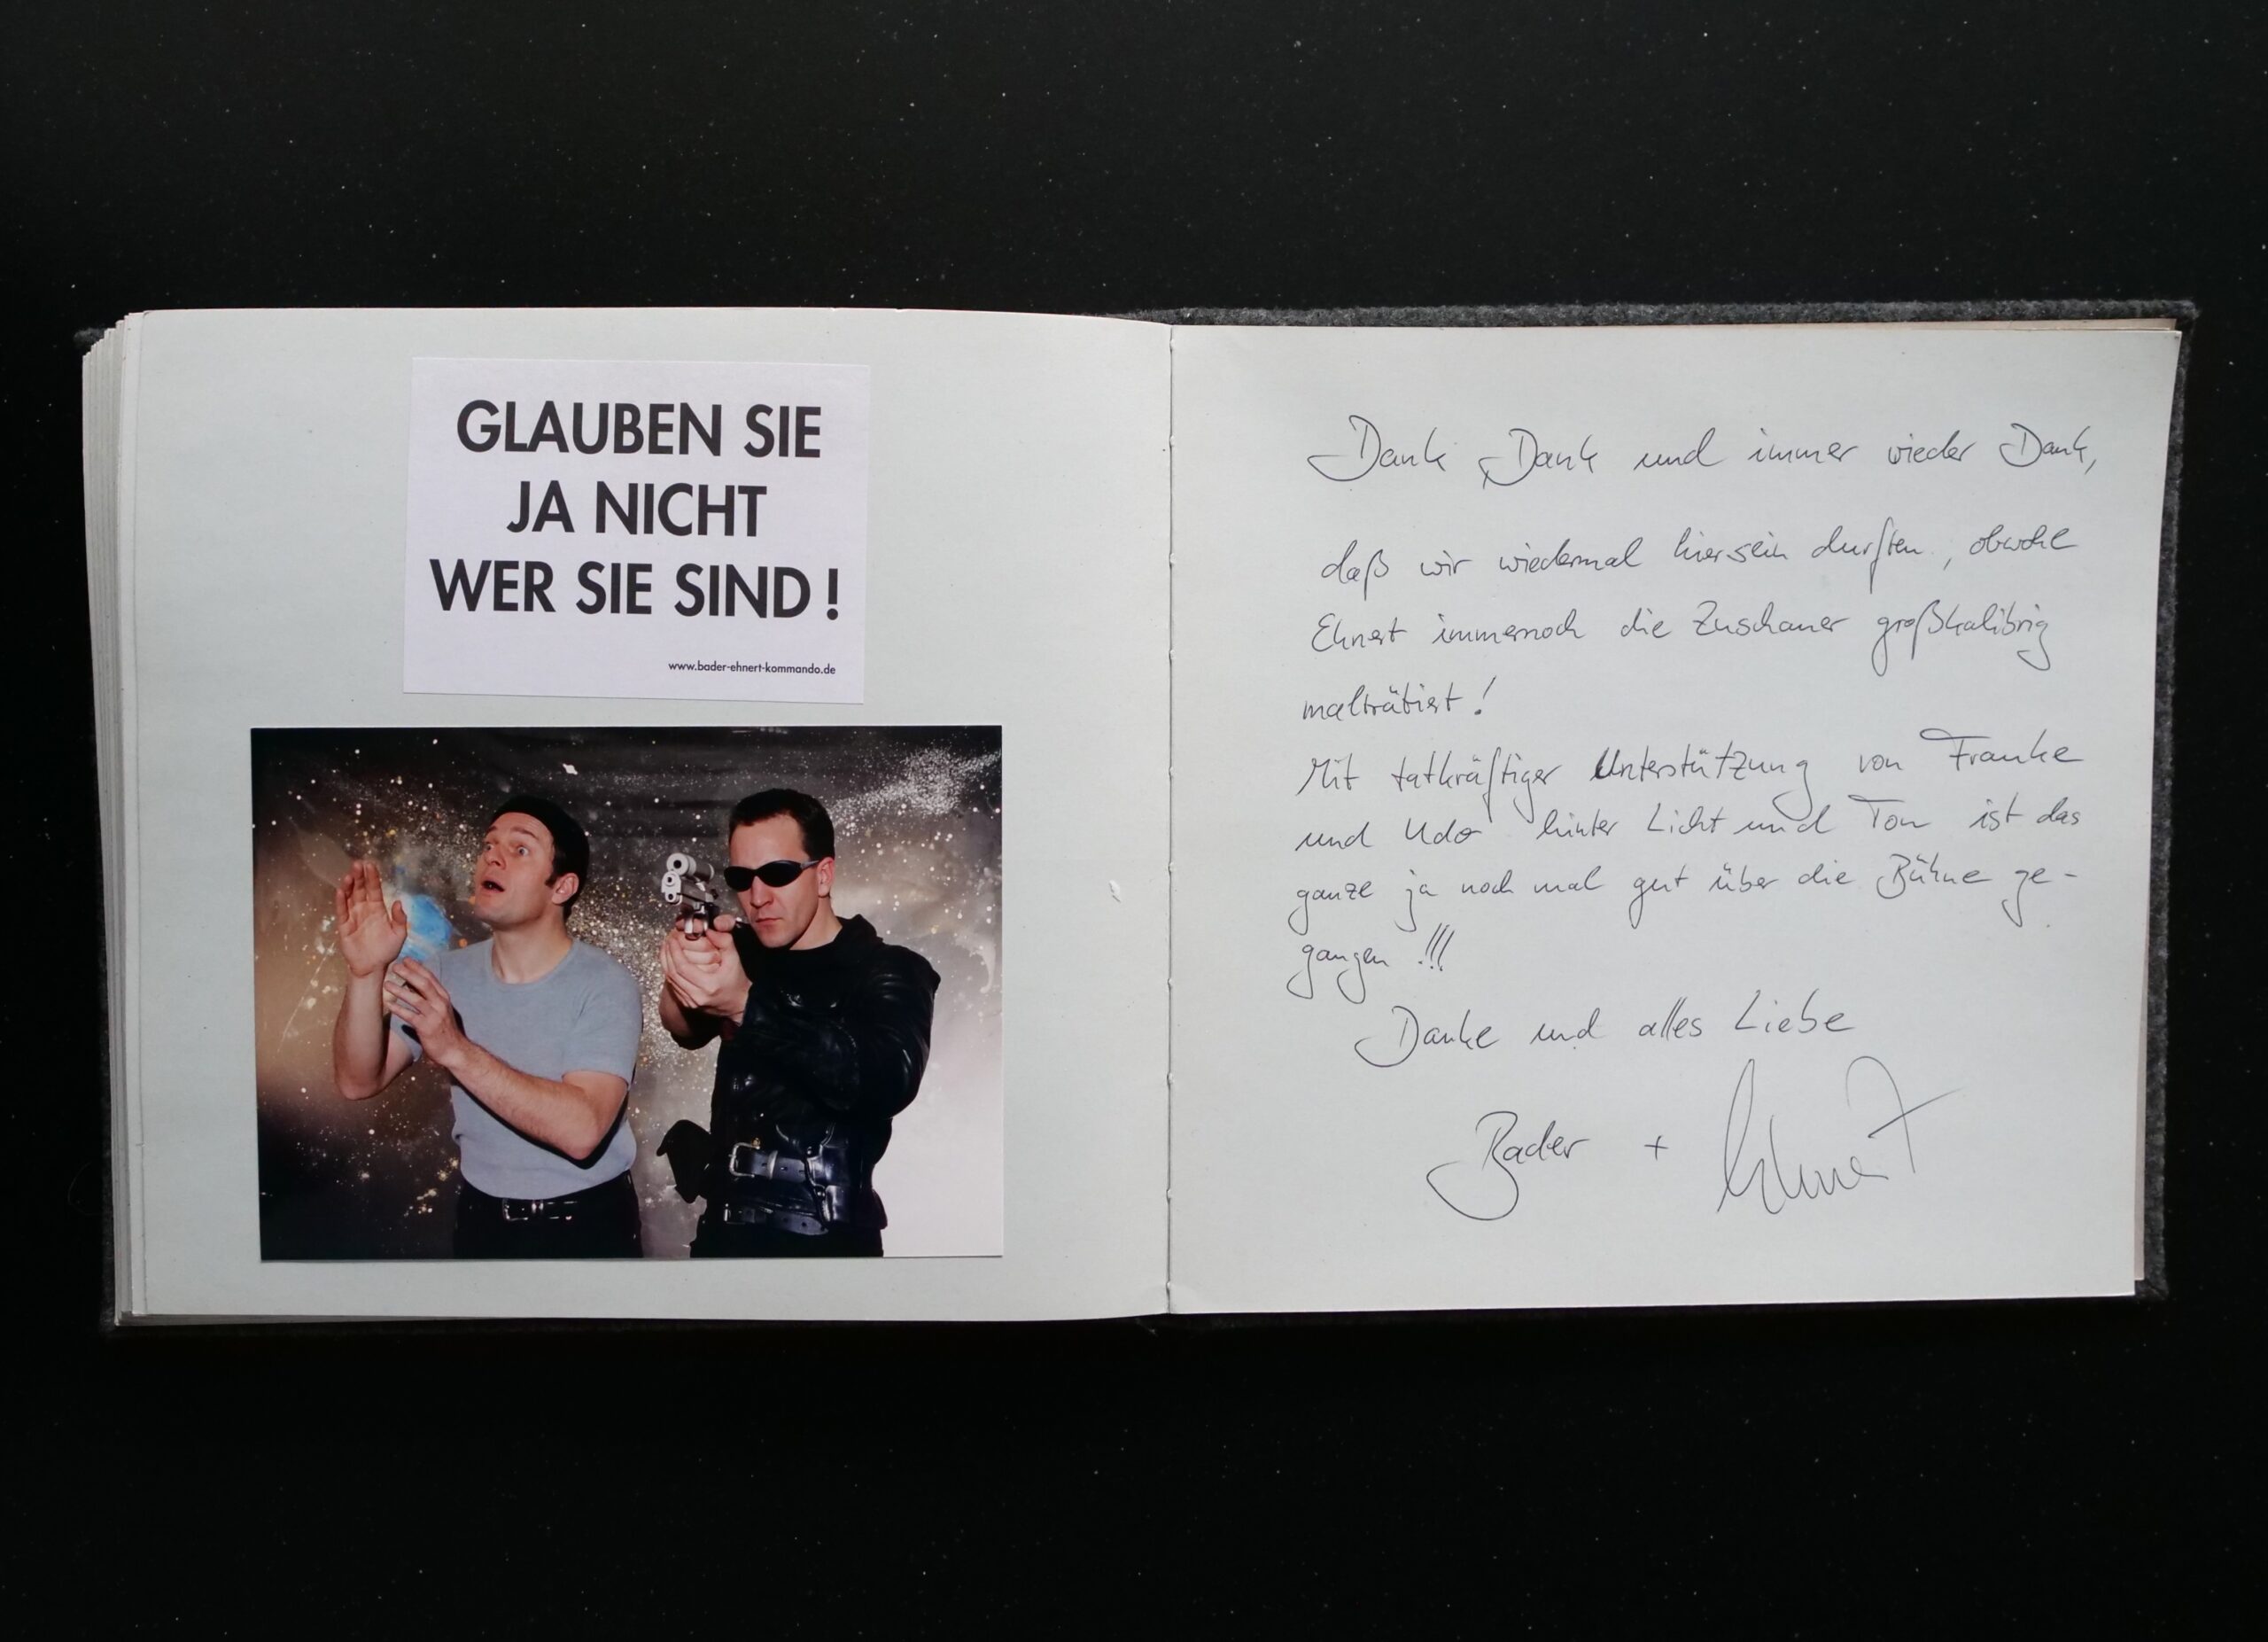 GLAUBEN SIE
JA NICHT
WER SIE SIND!
www.bader-ehnert-kommando.de
Dank, Dank und immer wieder Dank,
daß wir wiedermal hiersein durften, obwohl
Ehnert immernoch die Zuschauer großkalibrig
malträtiert!
Mit tatkräftiger Unterstützung von Frauke
und Udo hinter Licht und Ton ist das
ganze ja noch mal gut über die Bühne ge-
gangen !!!
Danke und alles Liebe
Bader + Ehnert